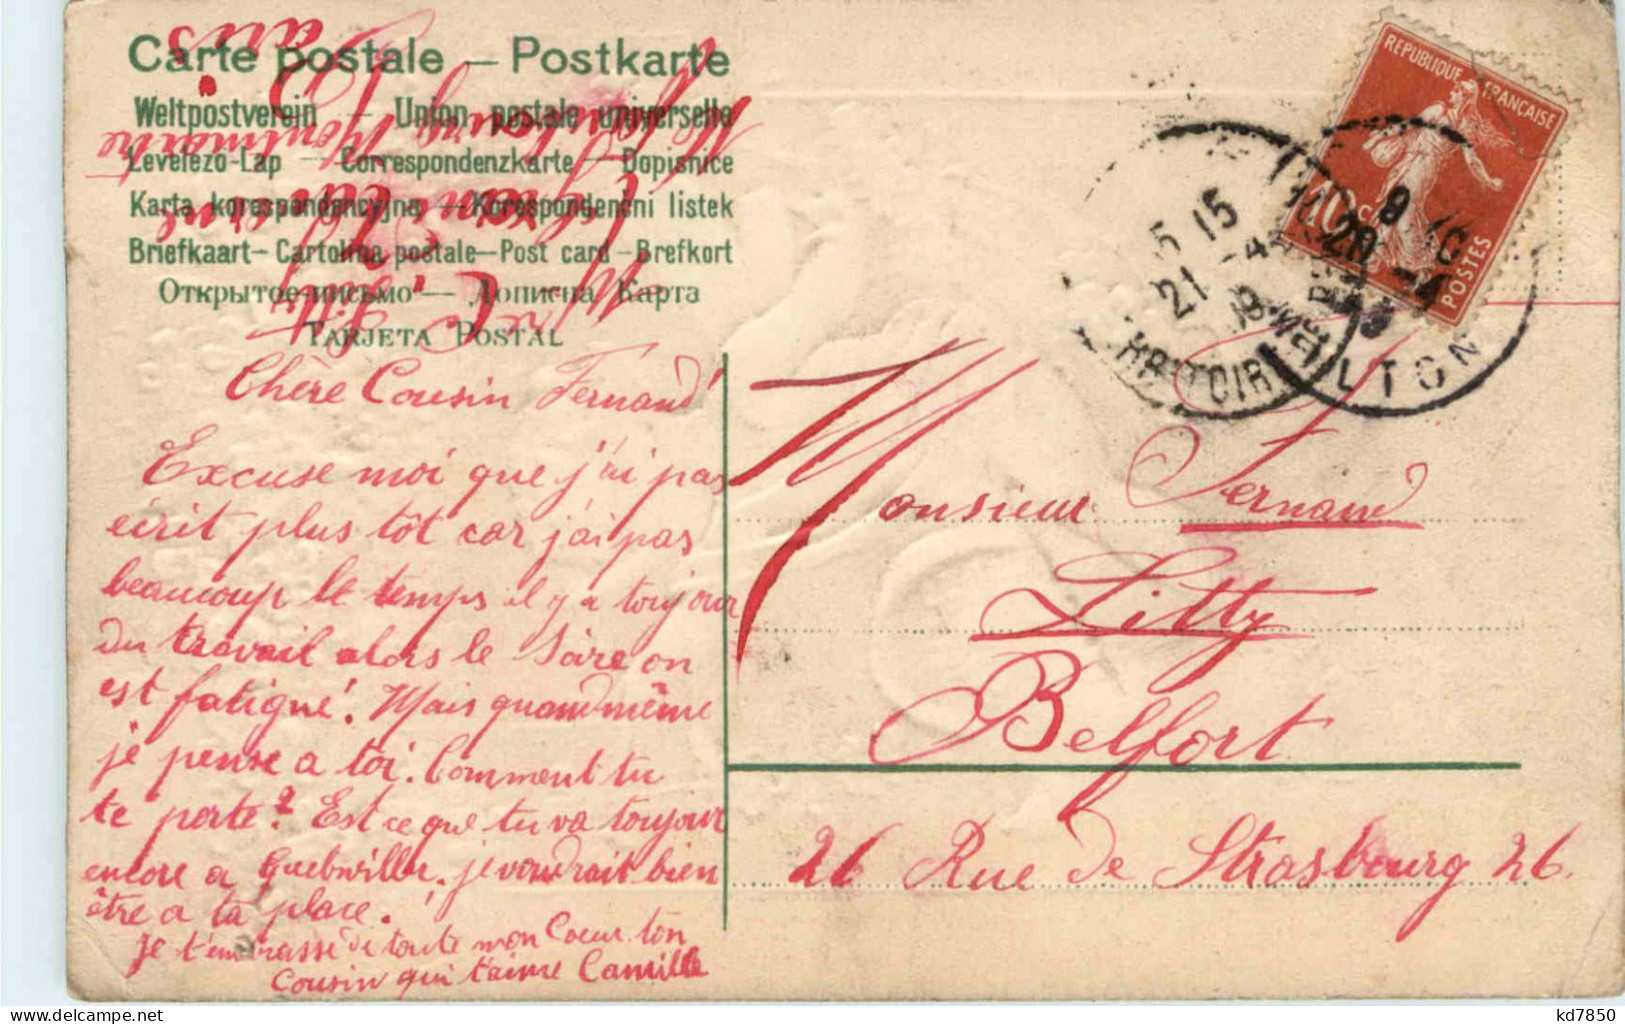 Carte postale — Postkarte
Weltpostverein — Union postale universelle
Levelezö-Lap — Correspondenzkarte — Dopisnice
Karta korespondencyjna — Korespondenčni listek
Briefkaart — Cartolina postale — Post card — Brefkort
Открытое письмо — Дописна Карта
TARJETA POSTAL
Chère Cousin Fernand
Excuse moi que j'ai pas
écrit plus tôt car j'ai pas
beaucoup le temps il y a toujour
du travail alors le soire on
est fatigué. Mais quand même
je pense a toi. Comment tu
te porte? Est ce que tu va toujour
encore a Guebwiller. je voudrait bien
être a ta place.
Je t'embrasse de toute mon Coeur ton
Cousin qui t'aime Camille
Monsieur Fernand
Litty
Belfort
26 Rue de Strasbourg 26.
REPUBLIQUE FRANÇAISE
10 C
POSTES
15
21 -4
20 -4
Mr C. Litty
Faubourg Montmartre
Paris
kd7850